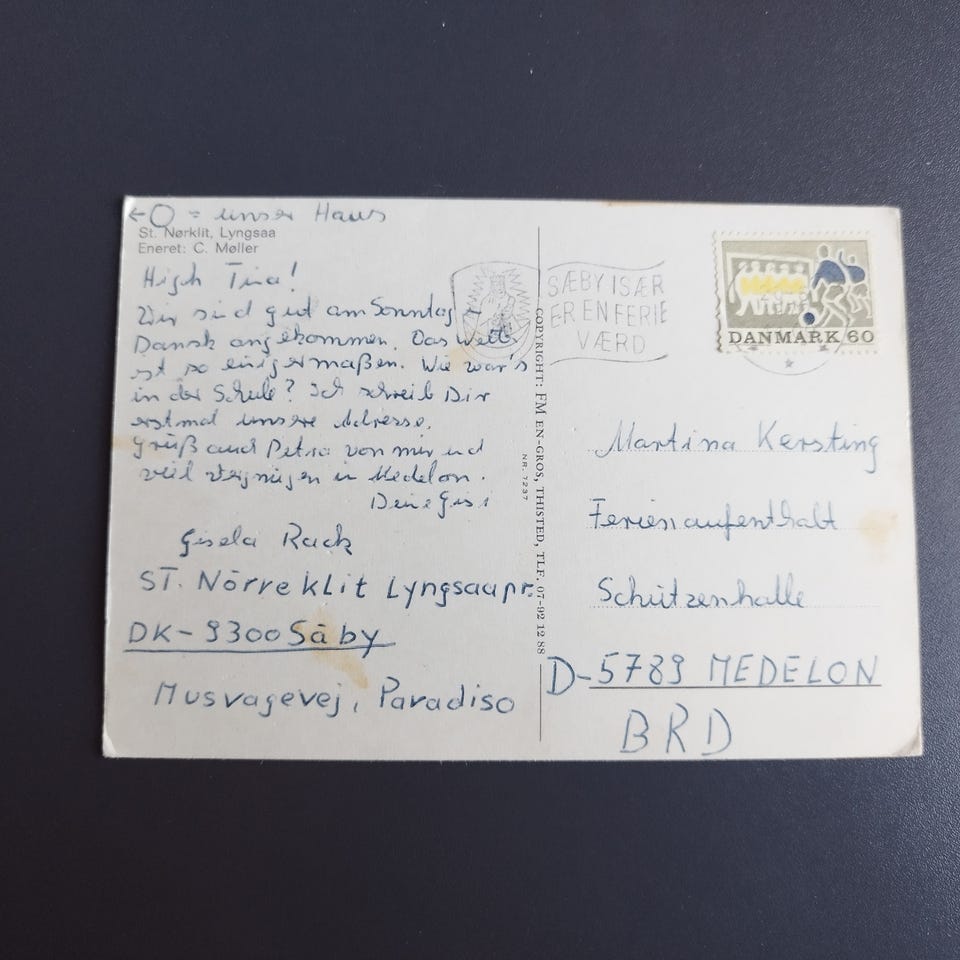 ←O = unser Haus
St. Nørklit, Lyngsaa
Eneret: C. Møller
High Tina!
Wir sind gut am Sonntag in
Dansk angekommen. Das Wetter
ist so einigermaßen. Wie war's
in der Schule? Ich schreib Dir
erstmal unsere Adresse.
Grüß auch Petra von mir und
viel vergnügen in Medelon.
Deine Gisi
Gisela Rack
ST. Nörreklit Lyngsaapr.
DK-9300 Säby
Musvagevej, Paradiso
COPYRIGHT: FM EN-GROS, THISTED, TLF. 07-92 12 88
NR. 7237
SÆBY ISÆR
ER EN FERIE
VÆRD
DANMARK 60
Martina Kersting
Ferienaufenthalt
Schützenhalle
D-5789 MEDELON
BRD